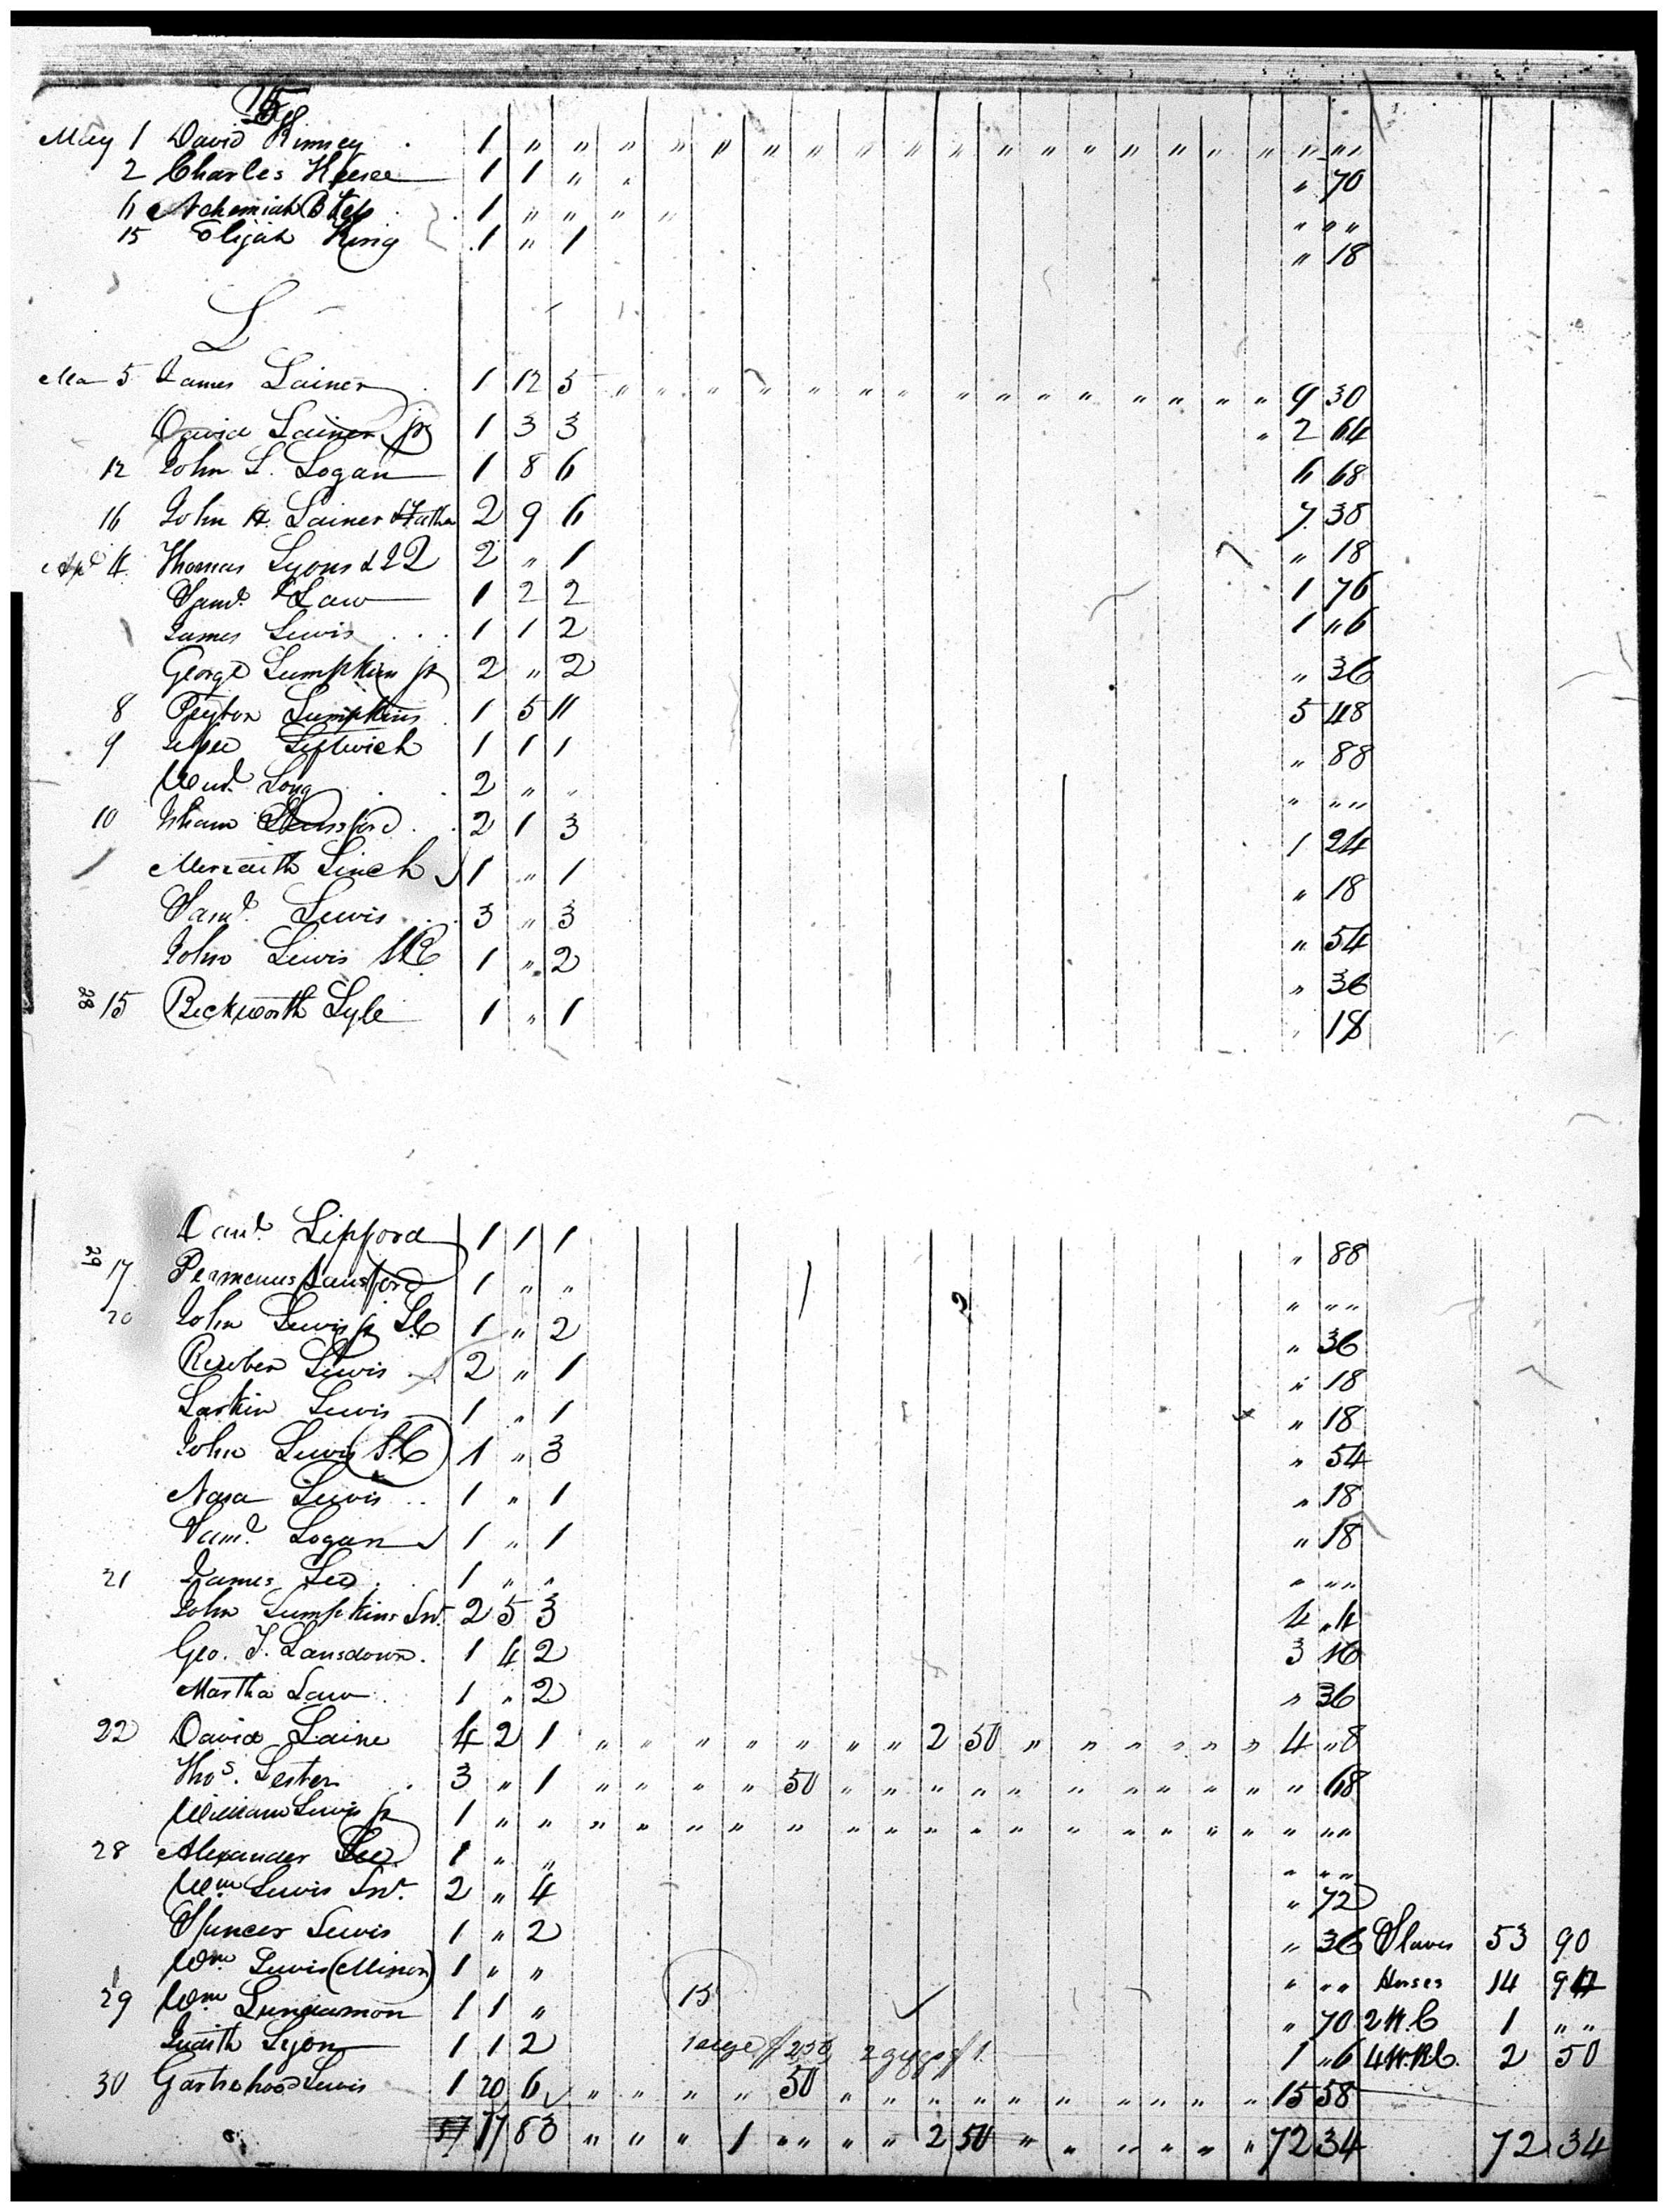 May 1 David Kinney 1 " " " " " " " " " " " " " " " " " " " "
2 Charles Keese 1 1 " " " 70
6 Nehemiah B 1 " " " " " " "
15 Elijah King 1 " 1 " 18
L
Ma 5 James Lainer 1 12 5 " " " " " " " " " " " " " " " 9 30
David Lainer jr 1 3 3 " 2 64
12 John L. Logan 1 8 6 6 68
16 John H. Lainer & Father 2 9 6 7 38
Apl 4 Thomas Lyons & 2 " 1 " 18
Saml Law 1 2 2 1 76
James Lewis 1 1 2 1 "6
George Lumpkin jr 2 " 2 " 36
8 Peyton Lumpkins 1 5 11 5 48
9 Leftwich 1 1 1 " 88
Long 2 " " " " "
10 Isham 2 1 3 1 24
Meredith Linch 1 " 1 " 18
Saml Lewis 3 " 3 " 54
John Lewis 1 " 2 " 36
28 15 Beckworth Lyle 1 " 1 " 18
Danl Lipford 1 1 1 " 88
29 17 Permenus Lansford 1 " " " " "
20 John Lewis jr SC 1 " 2 " 36
Reuben Lewis 2 " 1 " 18
Larkin Lewis 1 " 1 " 18
John Lewis (SC) 1 " 3 " 54
Lewis 1 " 1 " 18
Saml Logan 1 " 1 " 18
21 James Lee 1 " " " " "
John Lumpkins Snr. 2 5 3 4 "4
Geo. T. Lansdown 1 4 2 3 16
Martha Law 1 " 2 " 36
22 David Laine 4 2 1 " " " " " " " 2 50 " " " " " " 4 "8
Thos. Lester 3 " 1 " " " " 50 " " " " " " " " " " " " 68
William Lewis jr 1 " " " " " " " " " " " " " " " " " " " "
28 Alexander Lee 1 " " " " "
Wm Lewis Snr. 2 " 4 " 72
Spencer Lewis 1 " 2 " 36 Slaves 53 90
Wm Lewis (Minor) 1 " " " " " Horses 14 94
29 Wm Lunnamon 1 1 " 15 " 70 2 W. C 1 " "
Judith Lyon 1 1 2 2 gigs $1 1 "6 4 W.R.C. 2 50
30 Garthohood Lewis 1 20 6 " " " " 50 " " " " " " " " " " 15 58
57 77 83 " " " 1 " " " " 2 50 " " " " " " 72 34 72 34